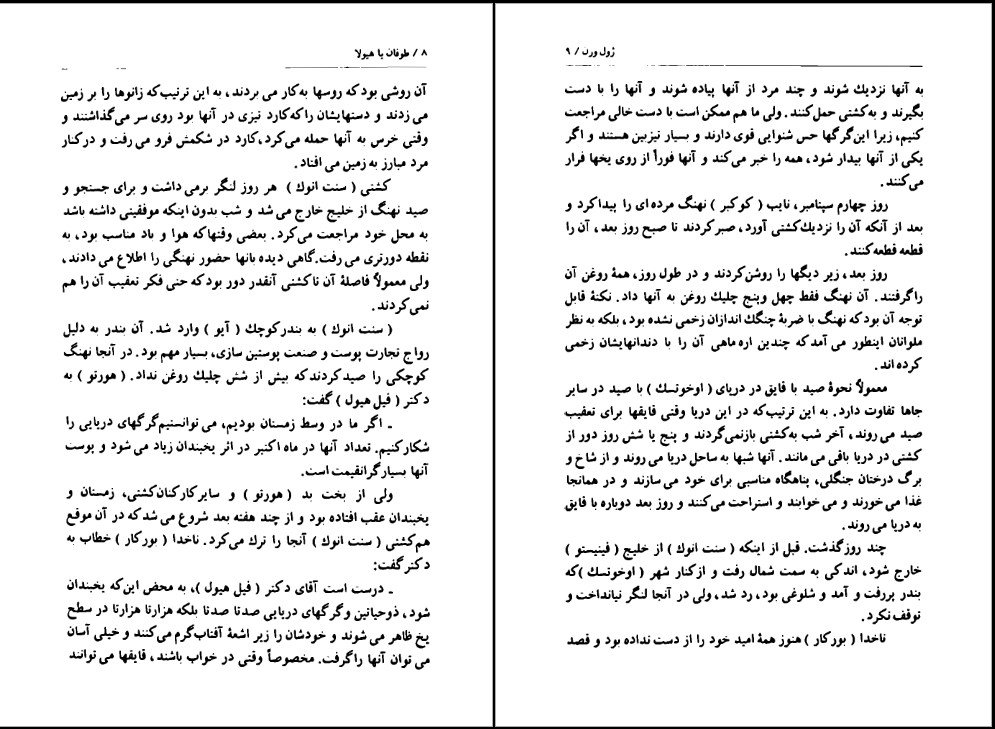 ۸ / طوفان یا هیولا
آن روشی بود که روسها به‌کار می بردند، به این ترتیب‌که زانوها را بر زمین
می زدند و دستهایشان را که‌کارد تیزی در آنها بود روی سر می‌گذاشتند و
وقتی خرس به آنها حمله می‌کرد، کارد در شکمش فرو می رفت و درکنار
مرد مبارز به زمین می افتاد .
کشتی ( سنت انوك ) هر روز لنگر برمی داشت و برای جستجو و
صید نهنگ از خلیج خارج می شد و شب بدون اینکه موفقیتی داشته باشد
به محل خود مراجعت می‌کرد. بعضی وقتها که هوا و باد مناسب بود، به
نقطه دورتری می رفت. گاهی دیده بانها حضور نهنگی را اطلاع می دادند،
ولی معمولاً فاصلهٔ آن تا کشتی آنقدر دور بود که حتی فکر تعقیب آن را هم
نمی‌کردند.
( سنت انوك ) به بندر کوچك ( آیو ) وارد شد. آن بندر به دلیل
رواج تجارت پوست و صنعت پوستین سازی، بسیار مهم بود. در آنجا نهنگ
کوچکی را صید کردند که بیش از شش چلیك روغن نداد. ( هورتو ) به
دکتر ( فیل هیول ) گفت:
ـ اگر ما در وسط زمستان بودیم، می توانستیم گرگهای دریایی را
شکار کنیم. تعداد آنها در ماه اکتبر در اثر یخبندان زیاد می شود و پوست
آنها بسیار گرانقیمت است.
ولی از بخت بد ( هورتو ) و سایر کارکنان کشتی، زمستان و
یخبندان عقب افتاده بود و از چند هفته بعد شروع می شد که در آن موقع
هم کشتی ( سنت انوك ) آنجا را ترك می‌کرد. ناخدا ( بورکار ) خطاب به
دکتر گفت:
ـ درست است آقای دکتر ( فیل هیول )، به محض این‌که یخبندان
شود، ذوحیاتین و گرگهای دریایی صدتا صدتا بلکه هزارتا هزارتا در سطح
یخ ظاهر می شوند و خودشان را زیر اشعهٔ آفتاب گرم می‌کنند و خیلی آسان
می توان آنها را گرفت. مخصوصاً وقتی در خواب باشند، قایقها می توانند
ژول ورن / ۹
به آنها نزدیك شوند و چند مرد از آنها پیاده شوند و آنها را با دست
بگیرند و به‌کشتی حمل‌کنند. ولی ما هم ممکن است با دست خالی مراجعت
کنیم، زیرا این گرگها حس شنوایی قوی دارند و بسیار تیزبین هستند و اگر
یکی از آنها بیدار شود، همه را خبر می‌کند و آنها فوراً از روی یخها فرار
می‌کنند .
روز چهارم سپتامبر، نایب ( کوکبر ) نهنگ مرده ای را پیدا کرد و
بعد از آنکه آن را نزدیك کشتی آورد، صبر کردند تا صبح روز بعد، آن را
قطعه قطعه کنند.
روز بعد، زیر دیگها را روشن کردند و در طول روز، همهٔ روغن آن
را گرفتند. آن نهنگ فقط چهل وپنج چلیك روغن به آنها داد. نکتهٔ قابل
توجه آن بود که نهنگ با ضربهٔ چنگك اندازان زخمی نشده بود، بلکه به نظر
ملوانان اینطور می آمد که چندین اره ماهی آن را با دندانهایشان زخمی
کرده اند.
معمولاً نحوهٔ صید با قایق در دریای ( اوخوتسك ) با صید در سایر
جاها تفاوت دارد. به این ترتیب‌که در این دریا وقتی قایقها برای تعقیب
صید می روند، آخر شب به‌کشتی بازنمی‌گردند و پنج یا شش روز دور از
کشتی در دریا باقی می مانند. آنها شبها به ساحل دریا می روند و از شاخ و
برگ درختان جنگلی، پناهگاه مناسبی برای خود می سازند و در همانجا
غذا می خورند و می خوابند و استراحت می‌کنند و روز بعد دوباره با قایق
به دریا می روند.
چند روز گذشت. قبل از اینکه ( سنت انوك ) از خلیج ( فینیستو )
خارج شود، اندکی به سمت شمال رفت و از کنار شهر ( اوخوتسك )که
بندر پررفت و آمد و شلوغی بود، رد شد، ولی در آنجا لنگر نیانداخت و
توقف نکرد.
ناخدا ( بورکار ) هنوز همهٔ امید خود را از دست نداده بود و قصد